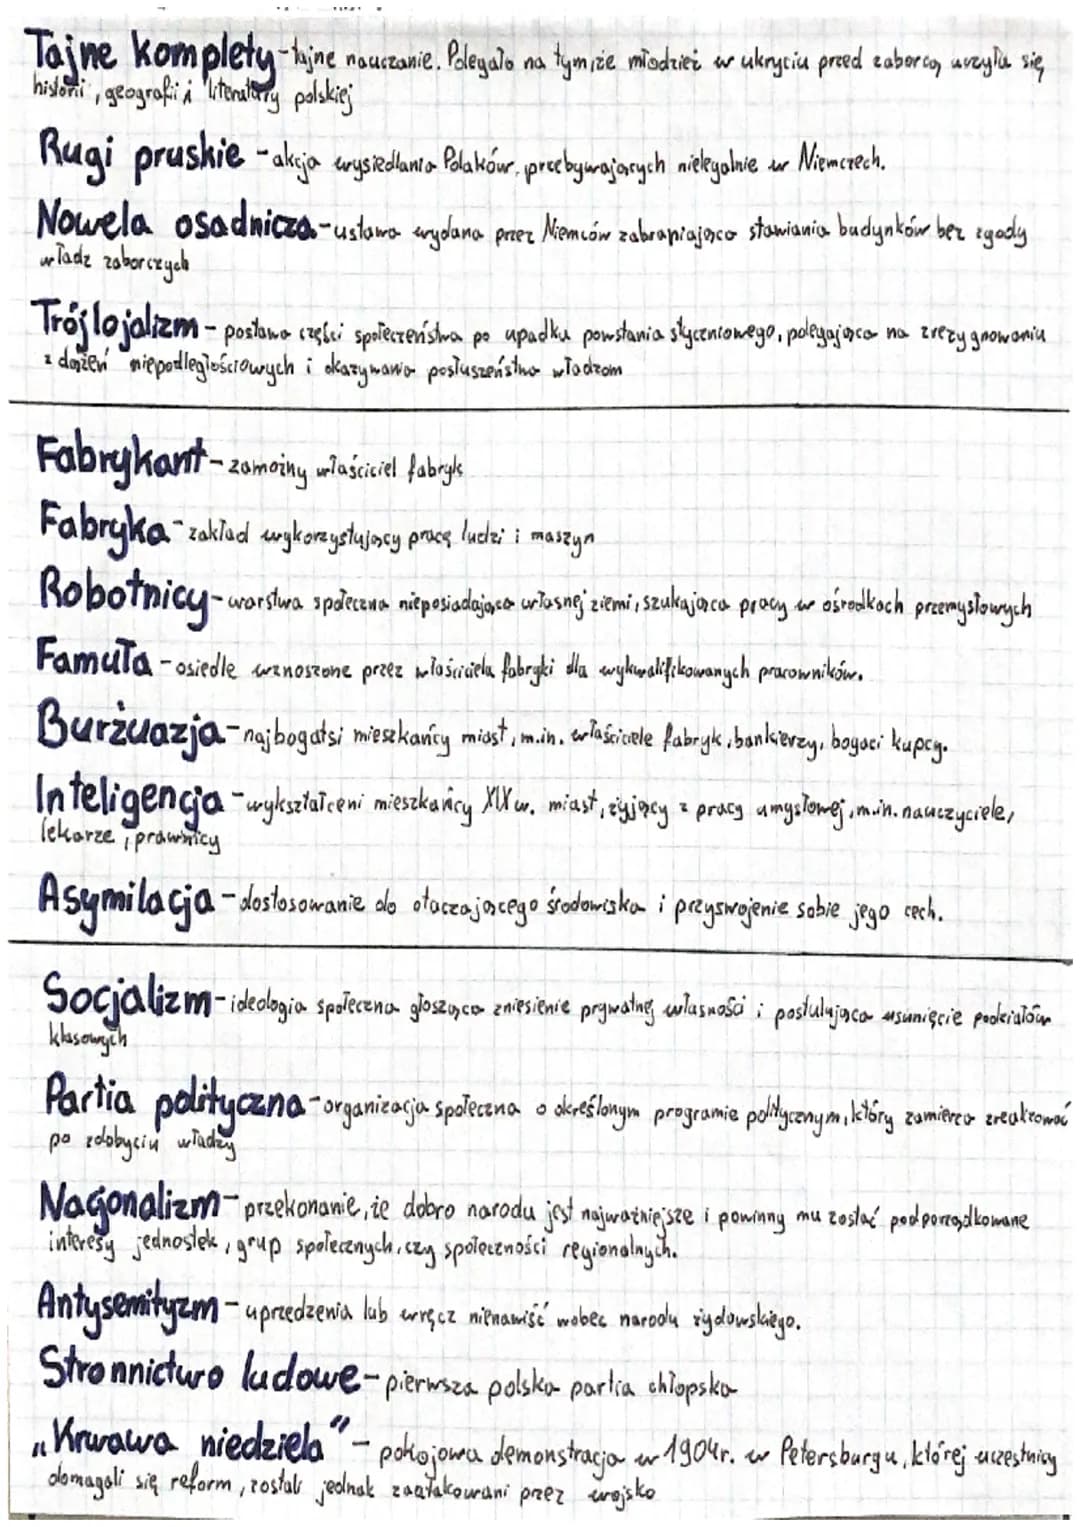 Tajne komplety - tajne nauczanie. Polegało na tym, że młodzież w ukryciu przed zaborcą uczyła się
historii, geografii i literatury polskiej
Rugi pruskie - akcja wysiedlania Polaków, przebywających nielegalnie w Niemczech.
Nowela osadnicza - ustawa wydana przez Niemców zabraniająca stawiania budynków bez zgody
władz zaborczych
Trójlojalizm - postawa części społeczeństwa po upadku powstania styczniowego, polegająca na zrezygnowaniu
z dążeń niepodległościowych i okazywania posłuszeństwa władzom
Fabrykant - zamożny właściciel fabryk
Fabryka - zakład wykorzystujący pracę ludzi i maszyn
Robotnicy - warstwa społeczna nieposiadająca własnej ziemi, szukająca pracy w ośrodkach przemysłowych
Famuła - osiedle wznoszone przez właściciela fabryki dla wykwalifikowanych pracowników.
Burżuazja - najbogatsi mieszkańcy miast, m.in. właściciele fabryk, bankierzy, bogaci kupcy.
Inteligencja - wykształceni mieszkańcy XIX w. miast, żyjący z pracy umysłowej, m.in. nauczyciele,
lekarze, prawnicy
Asymilacja - dostosowanie do otaczającego środowiska i przyswojenie sobie jego cech.
Socjalizm - ideologia społeczna głosząca zniesienie prywatnej własności i postulująca usunięcie podziałów
klasowych
Partia polityczna - organizacja społeczna o określonym programie politycznym, który zamierza zrealizować
po zdobyciu władzy
Nacjonalizm - przekonanie, że dobro narodu jest najważniejsze i powinny mu zostać podporządkowane
interesy jednostek, grup społecznych, czy społeczności regionalnych.
Antysemityzm - uprzedzenia lub wręcz nienawiść wobec narodu żydowskiego.
Stronnictwo ludowe - pierwsza polska partia chłopska
„Krwawa niedziela" - pokojowa demonstracja w 1904r. w Petersburgu, której uczestnicy
domagali się reform, zostali jednak zaatakowani przez wojsko